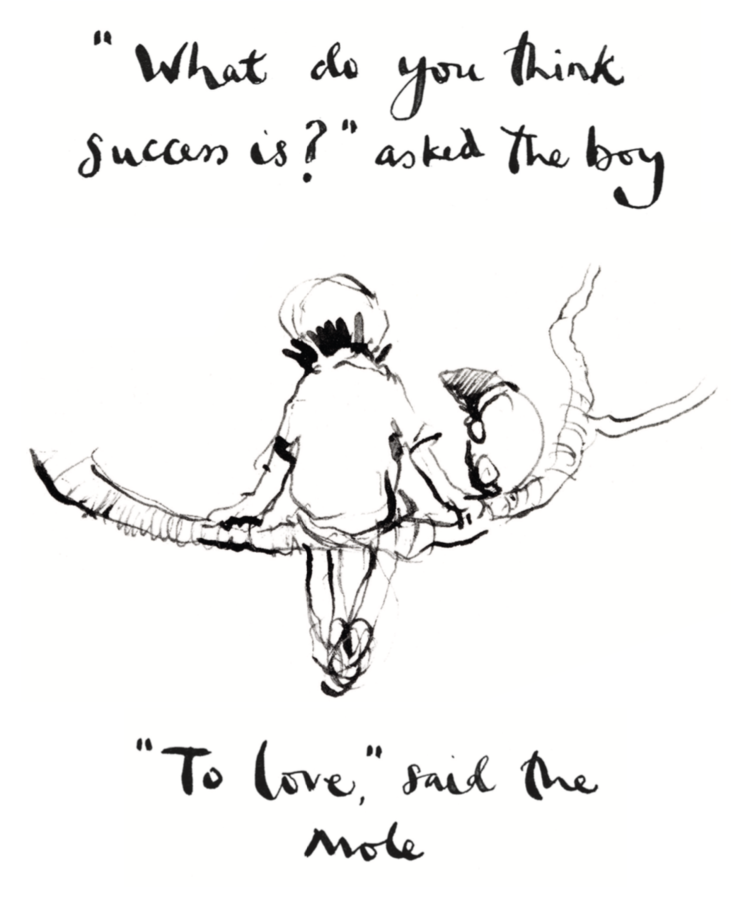 "What do you think
success is?" asked the boy
"To love," said the
mole